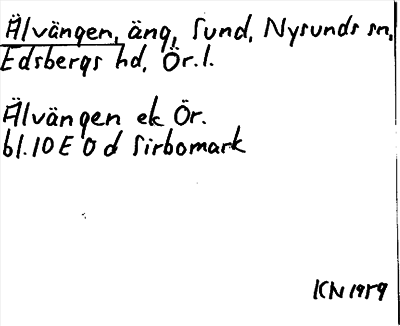 Älvängen, äng, Sund, Nysunds sn,
Edsbergs hd, Ör.l.
Älvängen ek Ör.
bl.10 E 0 d Sirbomark
KN 1959